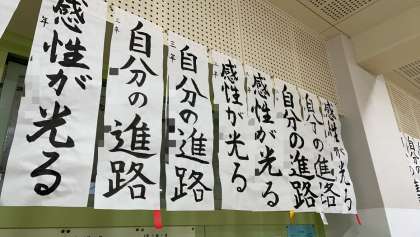 感性が光る
年
自分の進路
三年
自分の進路
三年
感性が光る
感性が光る
自分の進路
自分の進路
感性が光る
自分の